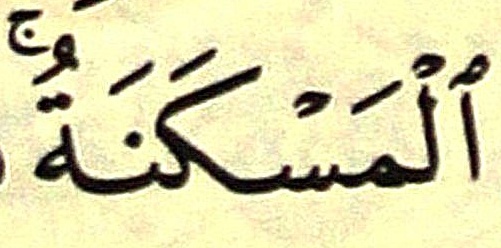 ٱلْمَسْكَنَةُ ۚ